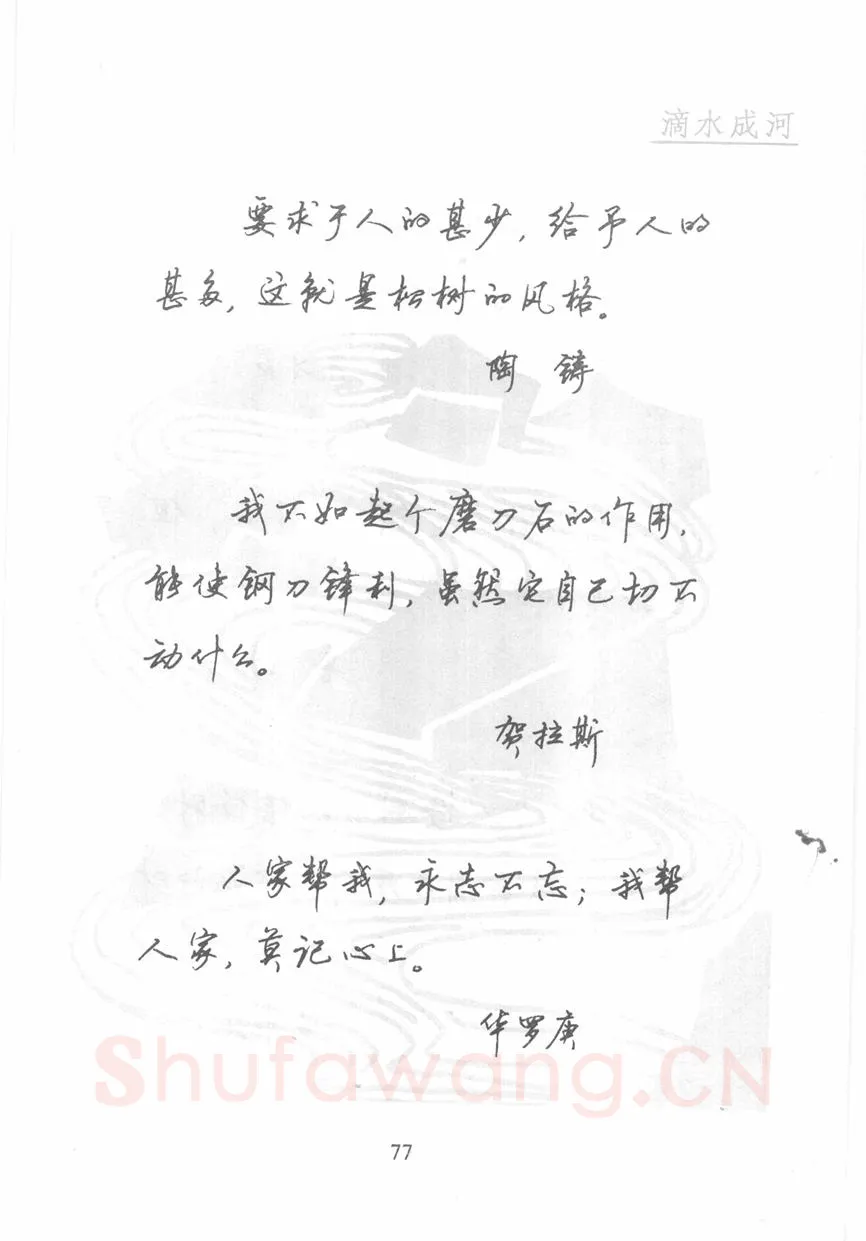 滴水成河
要求于人的甚少,给予人的
甚多,这就是松树的风格。
陶 铸
我不如起个磨刀石的作用,
能使钢刀锋利,虽然它自己切不
动什么。
贺拉斯
人家帮我,永志不忘;我帮
人家,莫记心上。
华罗庚
Shufawang.CN
77